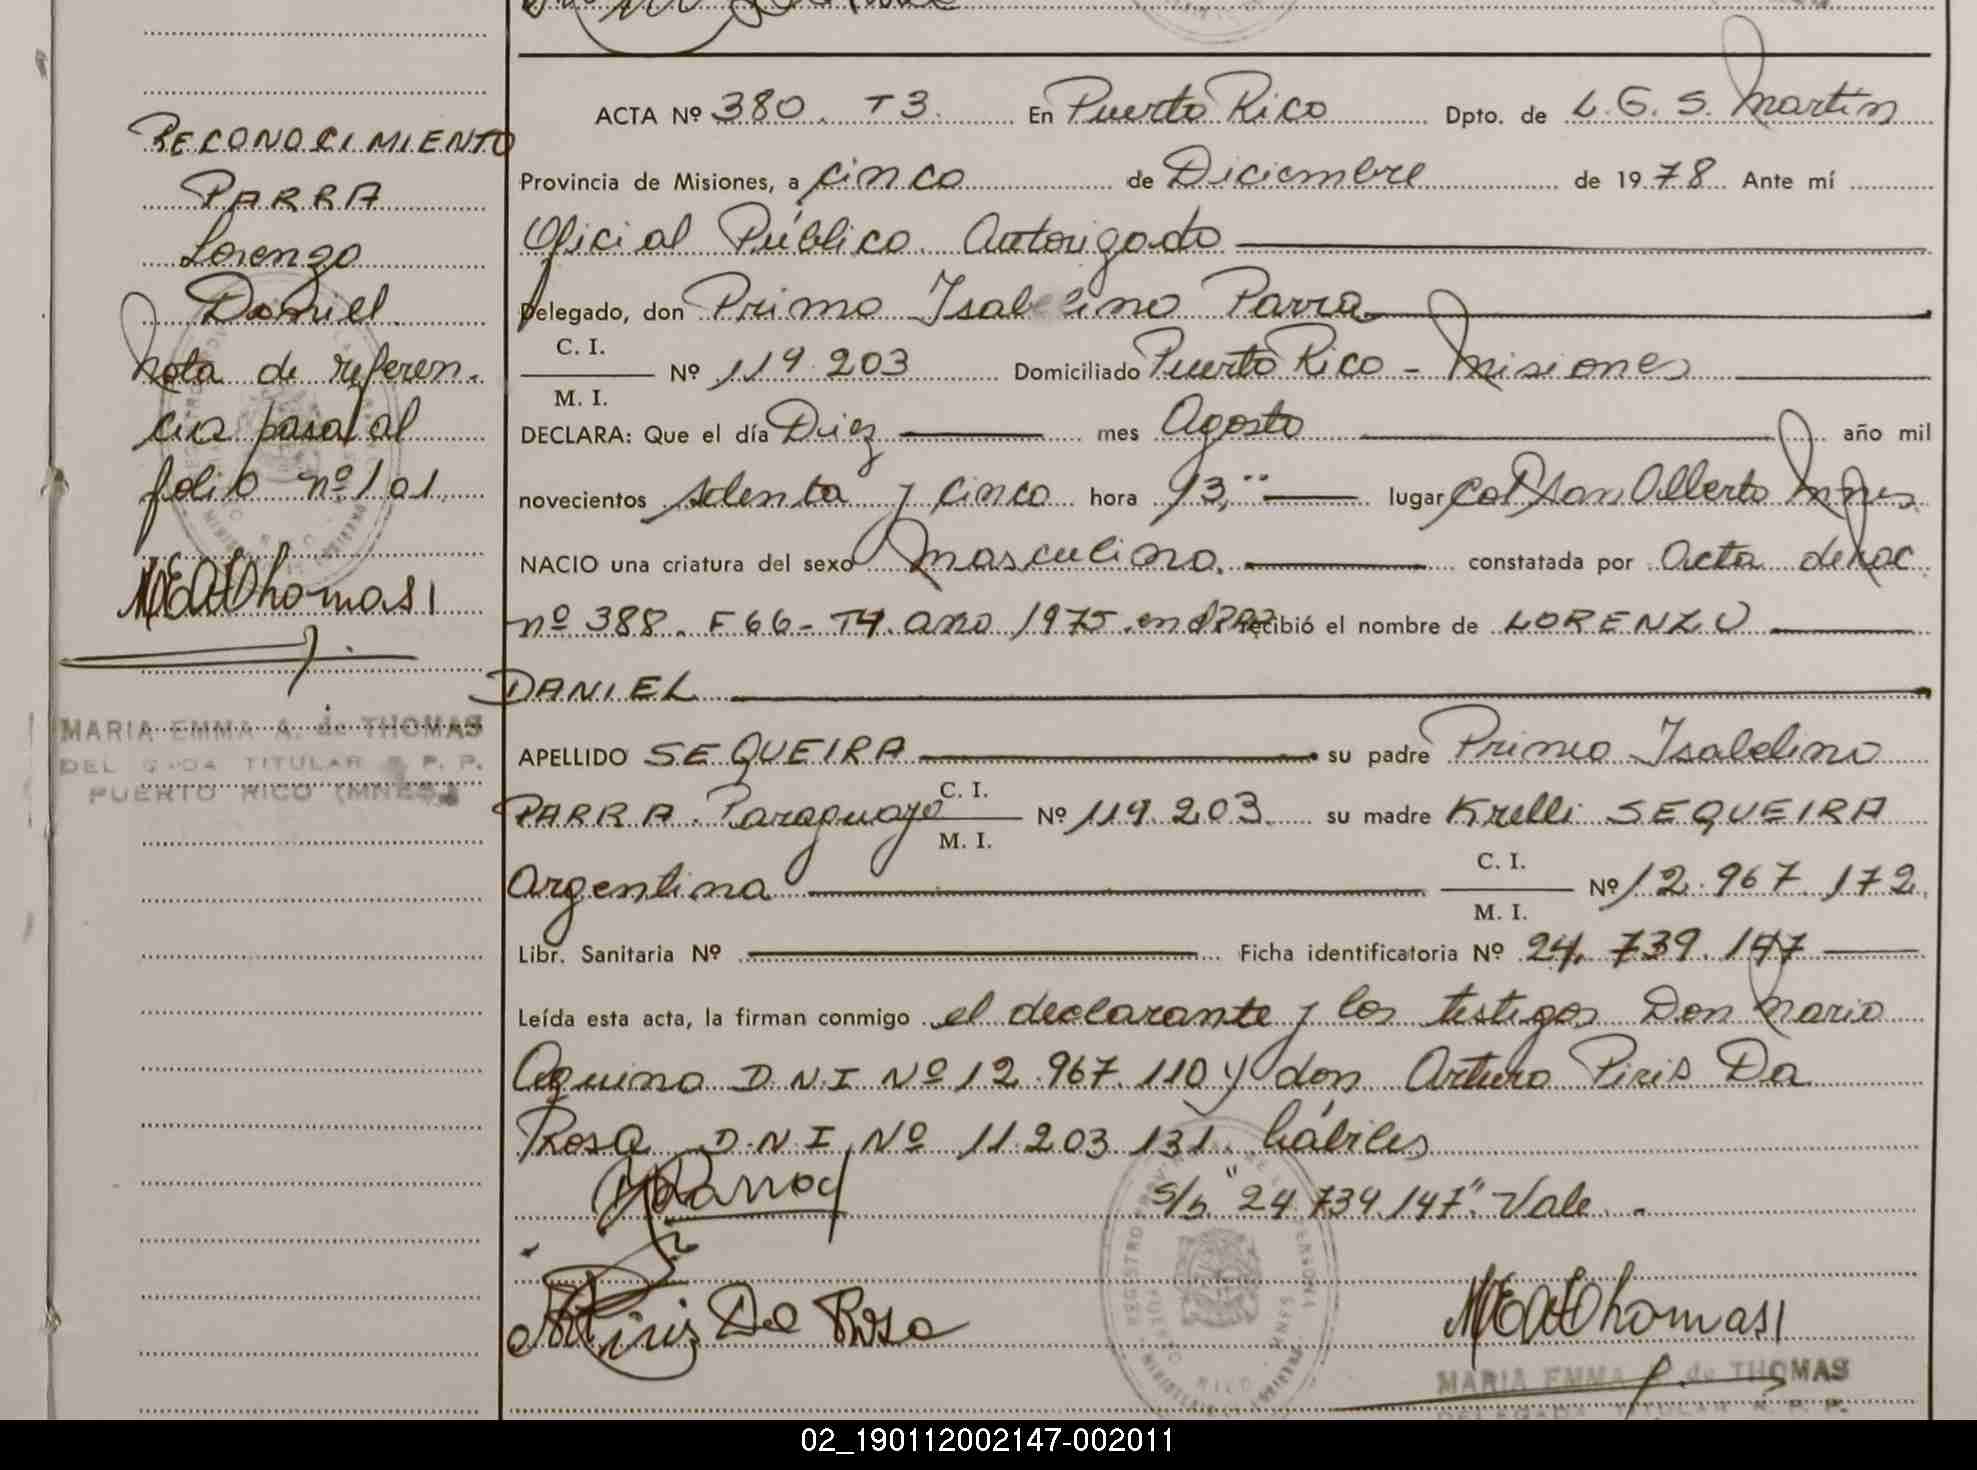 RECONOCIMIENTO
PARRA
Lorenzo
Daniel
nota de referen-
cia pasa al
folio nº 101
MEAdThomas
MARIA EMMA A. de THOMAS
DELEGADA TITULAR R. P. P.
PUERTO RICO (MNES.)
ACTA Nº 380. T3. En Puerto Rico Dpto. de L. G. S. Martín
Provincia de Misiones, a cinco de Diciembre de 1978 Ante mí
Oficial Público Autorizado
Delegado, don Primo Isabelino Parra
C. I.
Nº 119.203 Domiciliado Puerto Rico - Misiones
M. I.
DECLARA: Que el día Diez mes Agosto año mil
novecientos setenta y cinco hora 13," lugar Col San Alberto Mnes
NACIO una criatura del sexo masculino. constatada por Acta de Nac
nº 388. F 66- T4. año 1975. en recibió el nombre de LORENZO
DANIEL
APELLIDO SEQUEIRA su padre Primo Isabelino
PARRA. Paraguayo C. I. Nº 119.203 su madre Krelli SEQUEIRA
M. I.
Argentina C. I. Nº 12.967.172
M. I.
Libr. Sanitaria Nº Ficha identificatoria Nº 24.739.147
Leída esta acta, la firman conmigo el declarante y los testigos Don Mario
Aquino D.N.I Nº 12.967.110 y don Arturo Piris Da
Rosa D.N.I Nº 11.203.131 hábiles
s/b "24.739.147" Vale.-
Piriz Da Rosa
MEAdThomas
MARIA EMMA A. de THOMAS
DELEGADA TITULAR R. P. P.
02_190112002147-002011